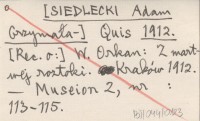 [SIEDLECKI Adam
Grzymała-] Quis 1912.
[Rec. o:] W. Orkan: Z mart-
wej roztoki. Kraków 1912.
— Museion 2, nr :
113-115.